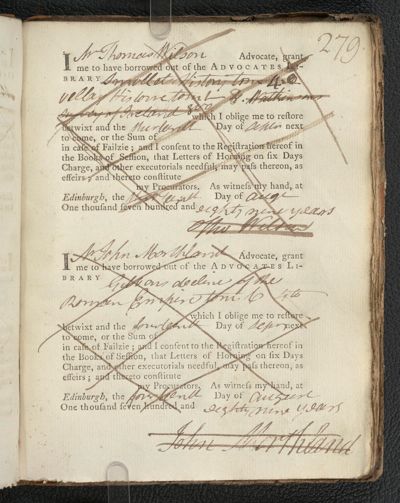 279.
I Mr Thomas Wilson Advocate, grant
me to have borrowed out of the ADVOCATES LI-
BRARY
which I oblige me to restore
betwixt and the Day of next
to come, or the Sum of
in case of Failzie ; and I consent to the Registration hereof in
the Books of Session, that Letters of Horning on six Days
Charge, and other executorials needful, may pass thereon, as
effeirs ; and thereto constitute
my Procurators. As witness my hand, at
Edinburgh, the Day of
One thousand seven hundred and eighty nine years
Wilson
I Mr John Morthland Advocate, grant
me to have borrowed out of the ADVOCATES LI-
BRARY Gibbons decline of the
Roman Empire tom. 6 4to
which I oblige me to restore
betwixt and the fourteenth Day of next
to come, or the Sum of
in case of Failzie ; and I consent to the Registration hereof in
the Books of Session, that Letters of Horning on six Days
Charge, and other executorials needful, may pass thereon, as
effeirs ; and thereto constitute
my Procurators. As witness my hand, at
Edinburgh, the fourteenth Day of august
One thousand seven hundred and eighty nine years
John Morthland